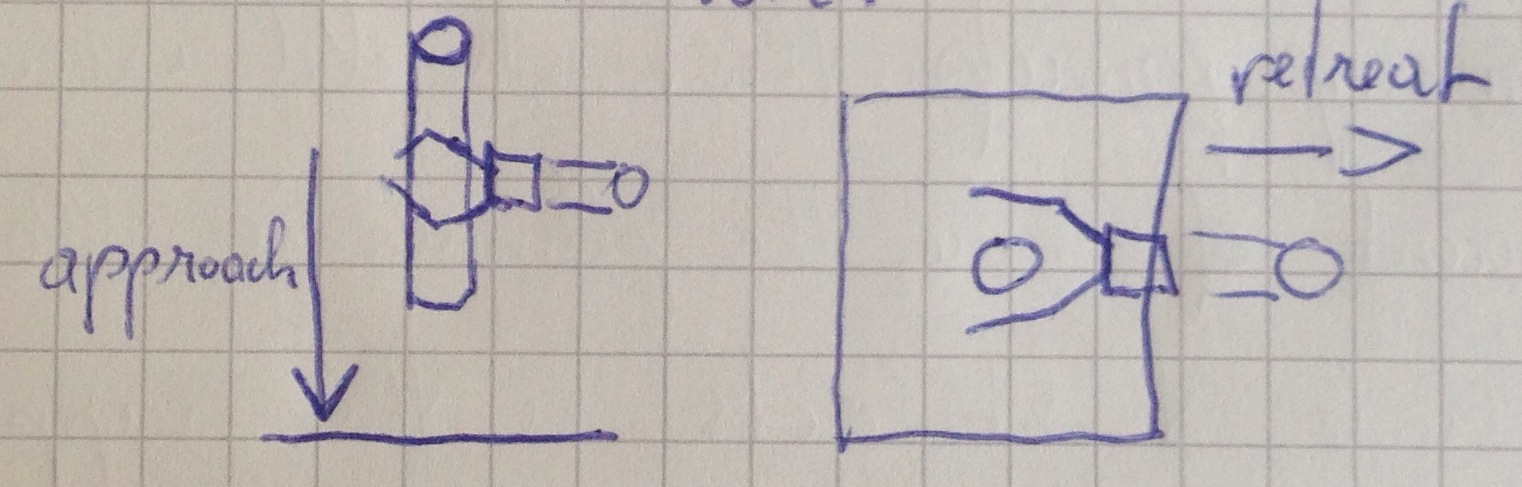 approach
retreat